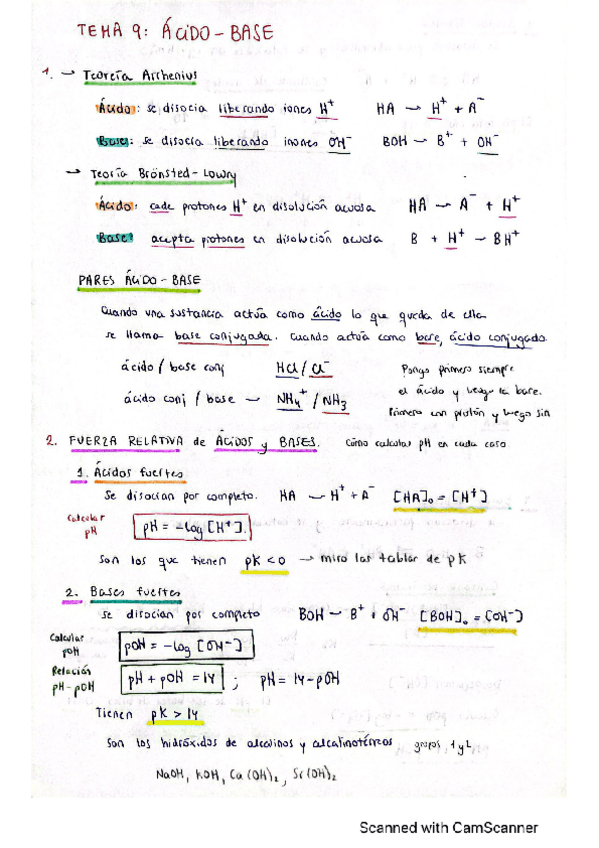 TEMA 9: ÁCIDO-BASE
1. → Teoreía Arrhenius
Ácido: se disocia liberando iones H⁺ HA → H⁺ + A⁻
Base: se disocia liberando inones OH⁻ BOH → B⁺ + OH⁻
→ Teoría Brönsted-Lowry
Ácido: cede protones H⁺ en disolución acuosa HA → A⁻ + H⁺
Base: acepta protones en disolución acuosa B + H⁺ → BH⁺
PARES ÁCIDO-BASE
Cuando una sustancia actúa como ácido lo que queda de ella
se llama base conjugada. Cuando actúa como base, ácido conjugado.
ácido / base conj HCl / Cl⁻ Pongo primero siempre
el ácido y luego la base.
ácido conj / base → NH₄⁺ / NH₃ Primero con protón y luego sin
2. FUERZA RELATIVA de ÁCIDOS y BASES. Cómo calcular pH en cada caso
1. Ácidos fuertes
Se disocian por completo. HA → H⁺ + A⁻ [HA]₀ = [H⁺]
Calcular pH pH = -log [H⁺].
Son los que tienen pK < 0 → miro las tablas de pK
2. Bases fuertes
Se disocian por completo BOH → B⁺ + OH⁻ [BOH]₀ = [OH⁻]
Calcular pOH pOH = -log [OH⁻]
Relación pH-pOH pH + pOH = 14 ; pH = 14 - pOH
Tienen pK > 14
Son los hidróxidos de alcalinos y alcalinotérreos grupos 1 y 2
NaOH, KOH, Ca(OH)₂, Sr(OH)₂
Scanned with CamScanner